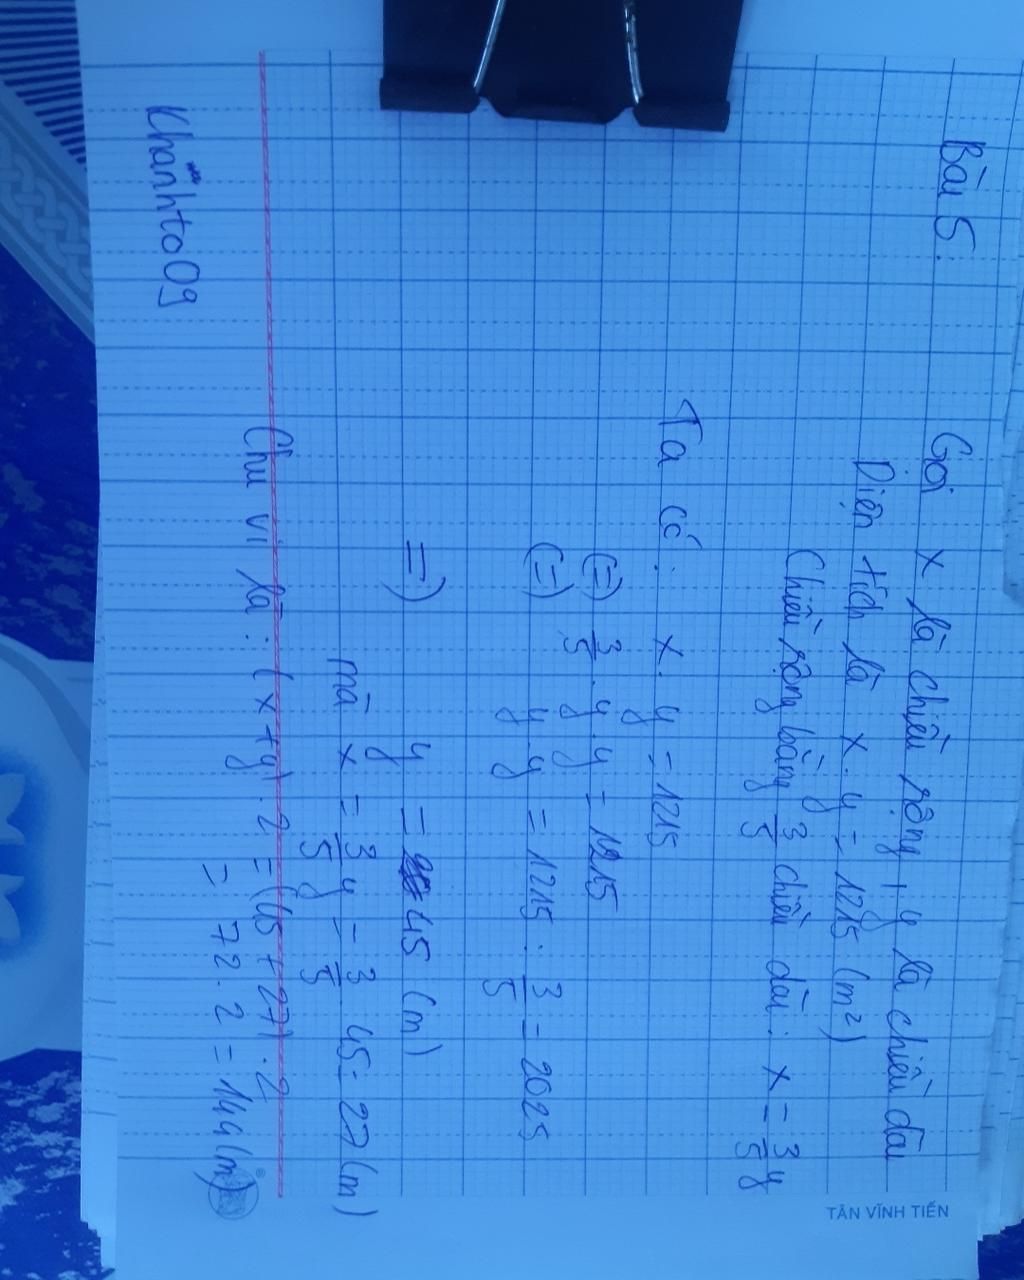 Bài 5:
Gọi x là chiều rộng, y là chiều dài
Diện tích là x.y = 1215 (m²)
Chiều rộng bằng 3/5 chiều dài: x = 3/5 y
Ta có: x.y = 1215
(=) 3/5 . y.y = 1215
(=) y.y = 1215 : 3/5 = 2025
=) y = 45 (m)
mà x = 3/5 y = 3/5 45 = 27 (m)
Chu vi là: (x+y).2 = (45 + 27).2
= 72.2 = 144 (m)
Khanhto09
TÂN VĨNH TIẾN